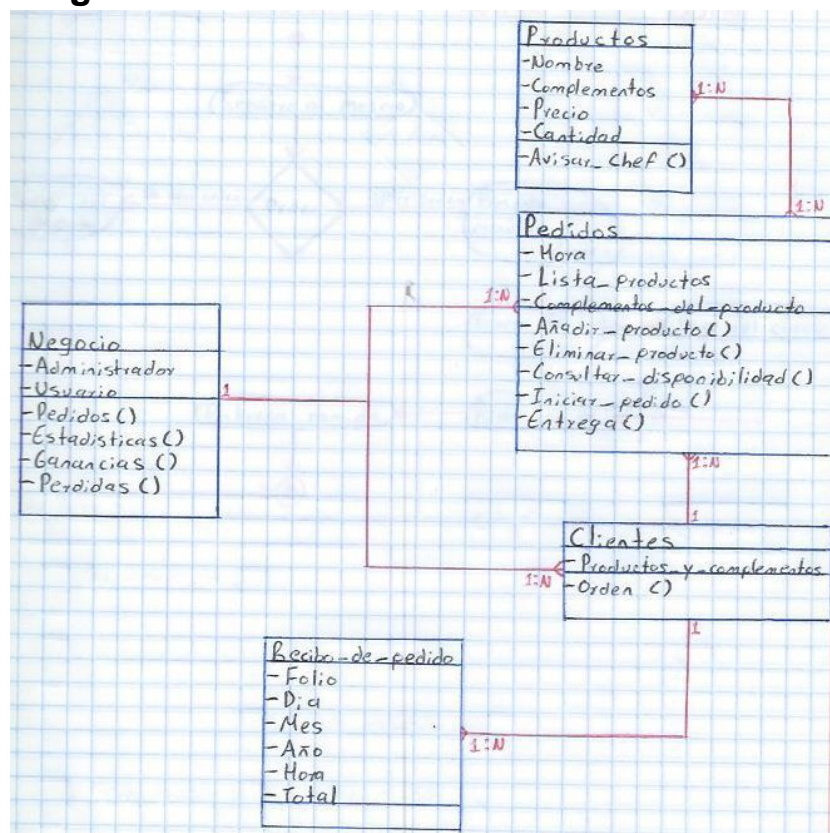 Productos
-Nombre
-Complementos
-Precio
-Cantidad
-Avisar_Chef ()
1:N
1:N
Pedidos
- Hora
- Lista_productos
- Complementos_del_producto
- Añadir_producto ()
- Eliminar_producto ()
- Consultar_disponibilidad ()
- Iniciar_pedido ()
- Entrega ()
1:N
1:N
Negocio
-Administrador
-Usuario
-Pedidos ()
-Estadisticas ()
-Ganancias ()
-Perdidas ()
1
1
Clientes
- Productos_y_complementos
- Orden ()
1:N
1
Recibo_de_pedido
- Folio
- Dia
- Mes
- Año
- Hora
- Total
1:N